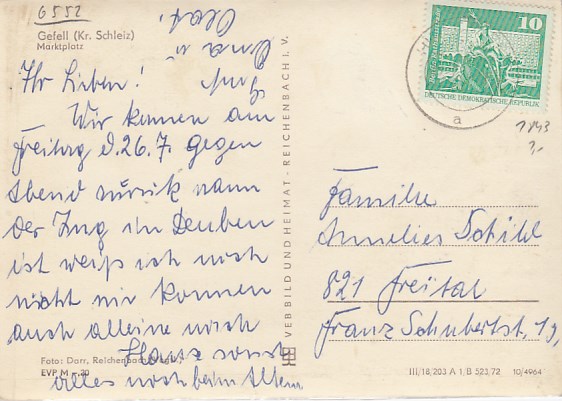 6552
Gefell (Kr. Schleiz)
Marktplatz
Ihr Lieben!
Wir kommen am
Freitag d. 26. 7. gegen
Abend zurück wann
der Zug in Deuben
ist weiß ich noch
nicht wir kommen
auch alleine nach
Hause sonst
alles noch beim Alten.
Oma u.
Olaf
Foto: Darr, Reichenbach
EVP M -,20
VEB BILD UND HEIMAT · REICHENBACH I. V.
10
DEUTSCHE DEMOKRATISCHE REPUBLIK
a
1843
Familie
Annelies Schild
821 Freital
Franz Schubertst. 19,
III/18/203 A 1/B 523/72 10/4964